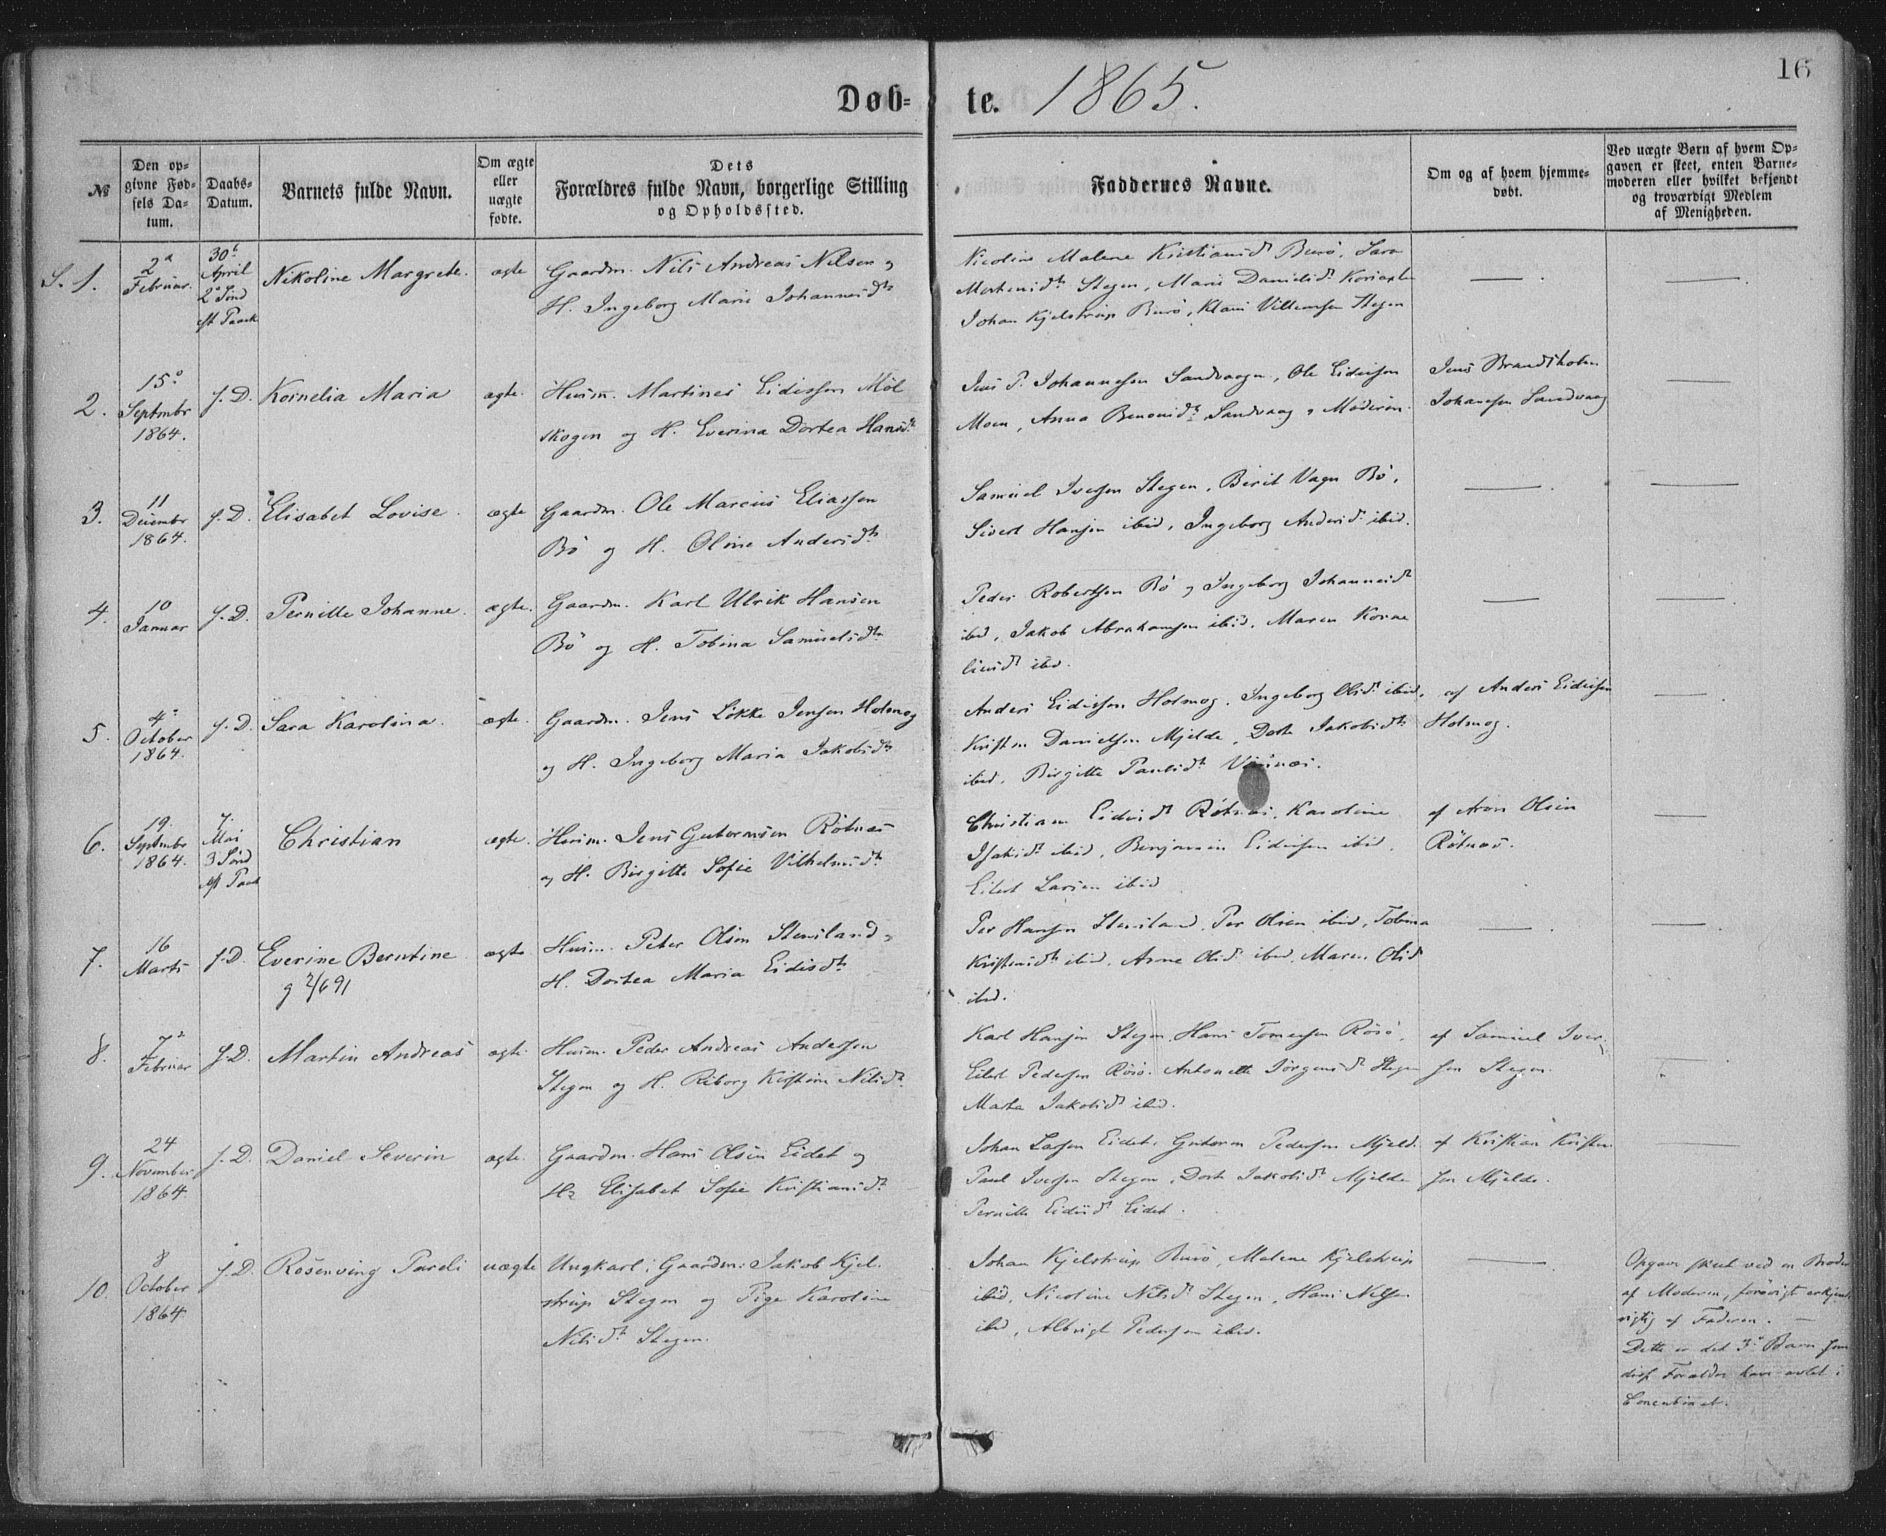 16
Døb- te. 1865.
№
Den op-
givne Fød-
sels Da-
tum.
Daabs-
Datum.
Barnets fulde Navn.
Om ægte
eller
uægte
fødte.
Dets
Forældres fulde Navn, borgerlige Stilling
og Opholdssted.
Faddernes Navne.
Om og af hvem hjemme-
døbt.
Ved uægte Børn af hvem Op-
gaven er skeet, enten Barne-
moderen eller hvilket bekjendt
og troværdigt Medlem
af Menigheden.
S. 1.
2
Februar.
30
April
2 Sønd
eft Paask
Nikoline Margrete.
ægte
Gaardm. Nils Andreas Nilsen og
H. Ingeborg Marie Johannesdtr
Nicoline Malene Kristiansdtr Burø, Sara
Mortensdtr Stegen, Marie Danielsdtr
Johan Kjelstrup Burø, Klaus Villemsen Stegen
2.
15.
Septembr
1864.
s. D.
Kornelia Maria
ægte.
Husm. Martines Eidissen Møl
skogen og H. Everina Dortea Hansdtr
Jens P. Johannesen Sandvaagn, Ole Eidissen
Moen, Anna Benonisdtr Sandvaag og Moderen.
Jens Brandtholm
Johansen Sandvaag
3.
11
Decembr
1864.
s. D.
Elisabet Lovise.
ægte
Gaardm. Ole Marcus Eliassen
Bø og H. Oline Andersdtr
Samuel Iversen Stegen, Berit Vagn Bø,
Sivert Hansen ibid, Ingeborg Andersdtr ibid.
4.
10
Januar
s. D.
Pernille Johanne.
ægte.
Gaardm. Karl Ulrik Hansen
Bø og H. Tobina Samuelsdtr
Peder Robertsen Bø og Ingeborg Johannesdtr
ibid, Jakob Abrahamsen ibid, Maren Korne
liusdtr ibd.
5.
4
October
1864.
s. D.
Sara Karolina.
ægte.
Gaardm. Jens Løkke Jensen Holmog
og H. Ingeborg Maria Jakobsdtr
Anders Eidissen Holmog. Ingeborg Olsdtr ibid.
Kristen Danielsen Mjelde, Dorte Jakobsdtr
ibid, Birgitte Paulsdtr
af Anders Eidissen
Holmog.
6.
19.
Septembr
1864.
7.
Mai
3 Sønd
eft Paask
Christian
ægte.
Husm. Jens Gutormsen Røtnes
og H. Birgitte Sofie Vilhelmsdtr
Christiane Eidisdtr Røtnes, Karoline
Isaksdtr ibid, Benjamin Eidissen ibid,
Eilert Larsen ibid
af Aron Olsen
Røtnes.
7.
16
Marts
s. D.
Everine Berntine
g 2/6 91
ægte
Husm. Peter Olsen Stensland og
H. Dortea Maria Eidisdtr
Per Hansen Stensland, Per Olsen ibid, Tobina
Kristensdtr ibid, Anne Olsdtr ibid, Maren Olsdtr
ibid.
8.
7
Februar
s. D.
Martin Andreas
ægte.
Husm. Peder Andreas Andersen
Stegen og H. Riborg Kirstine Nilsdtr
Karl Hansen Stegen, Hans Tomassen Røsø,
Eilert Pedersen Røsø. Antonette Jørgensdtr Stegen
Marta Jakobsdtr ibid.
af Samuel Iver-
sen Stegen.
9.
24
November
1864
s. D.
Daniel Severin
ægte.
Gaardm. Hans Olsen Eidet og
H. Elisabet Sofie Kristiansdtr
Johan Larsen Eidet. Gutorm Pedersen Mjeld.
Paul Iversen Stegen, Dorte Jakobsdtr Mjelde
Pernille Eidisdtr Eidet.
af Kristian Kristen
sen Mjelde.
10.
8
October
1864
s. D.
Rosenving Pareli
uægte
Ungkarl, Gaardm: Jakob Kjel-
strup Stegen og Pige Karoline
Nilsdtr Stegen.
Johan Kjelstrup Burø, Malene Kjelstrup
ibid, Nicoline Nilsdtr Stegen, Hans Nilsen
ibd, Albrigt Pedersen ibid.
Opgave skeet ved en Broder
af Moderen, forøvrigt erkjendt
rigtig af Faderen.
Dette er det 3 Barn som
disse Forældre have avlet i
Concubinat.